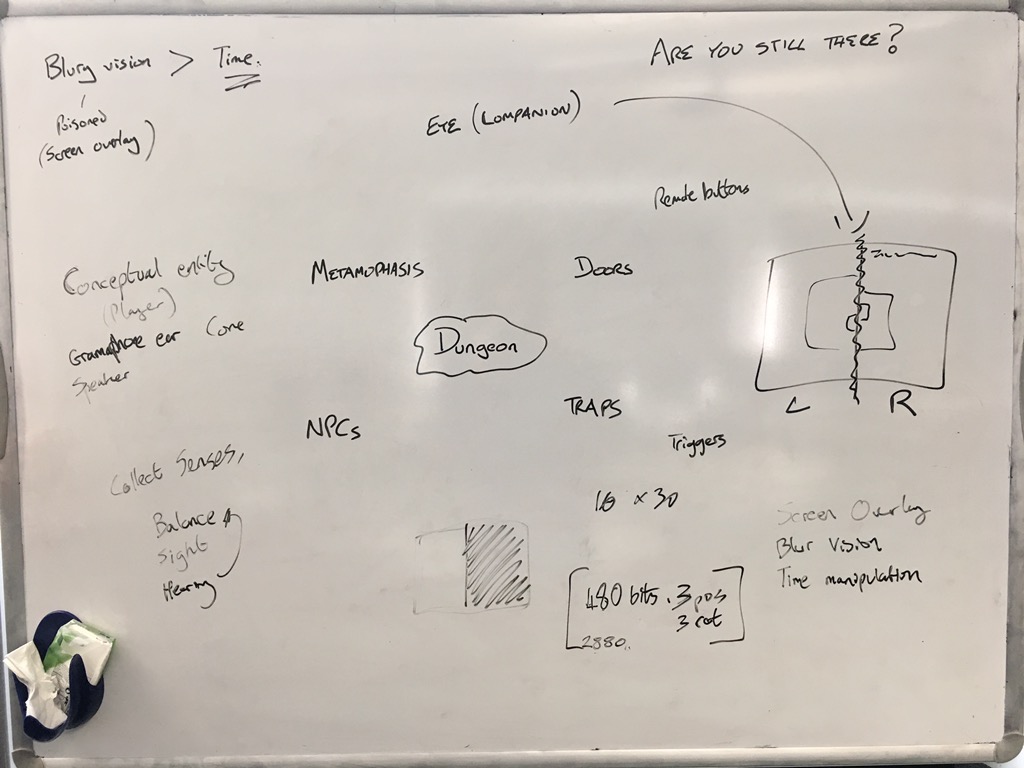 ARE YOU STILL THERE?
Blury vision > Time.
Poisoned
(Screen overlay)
EYE (COMPANION)
Remote buttons
Conceptual entity
(Player)
Gramaphone ear Cone
Speaker
METAMOPHASIS
DOORS
Dungeon
L R
NPCs
TRAPS
Triggers
Collect Senses,
Balance
Sight
Hearing
16 × 30
480 bits . 3 pos
3 rot
2880..
Screen Overlay
Blur Vision
Time manipulation